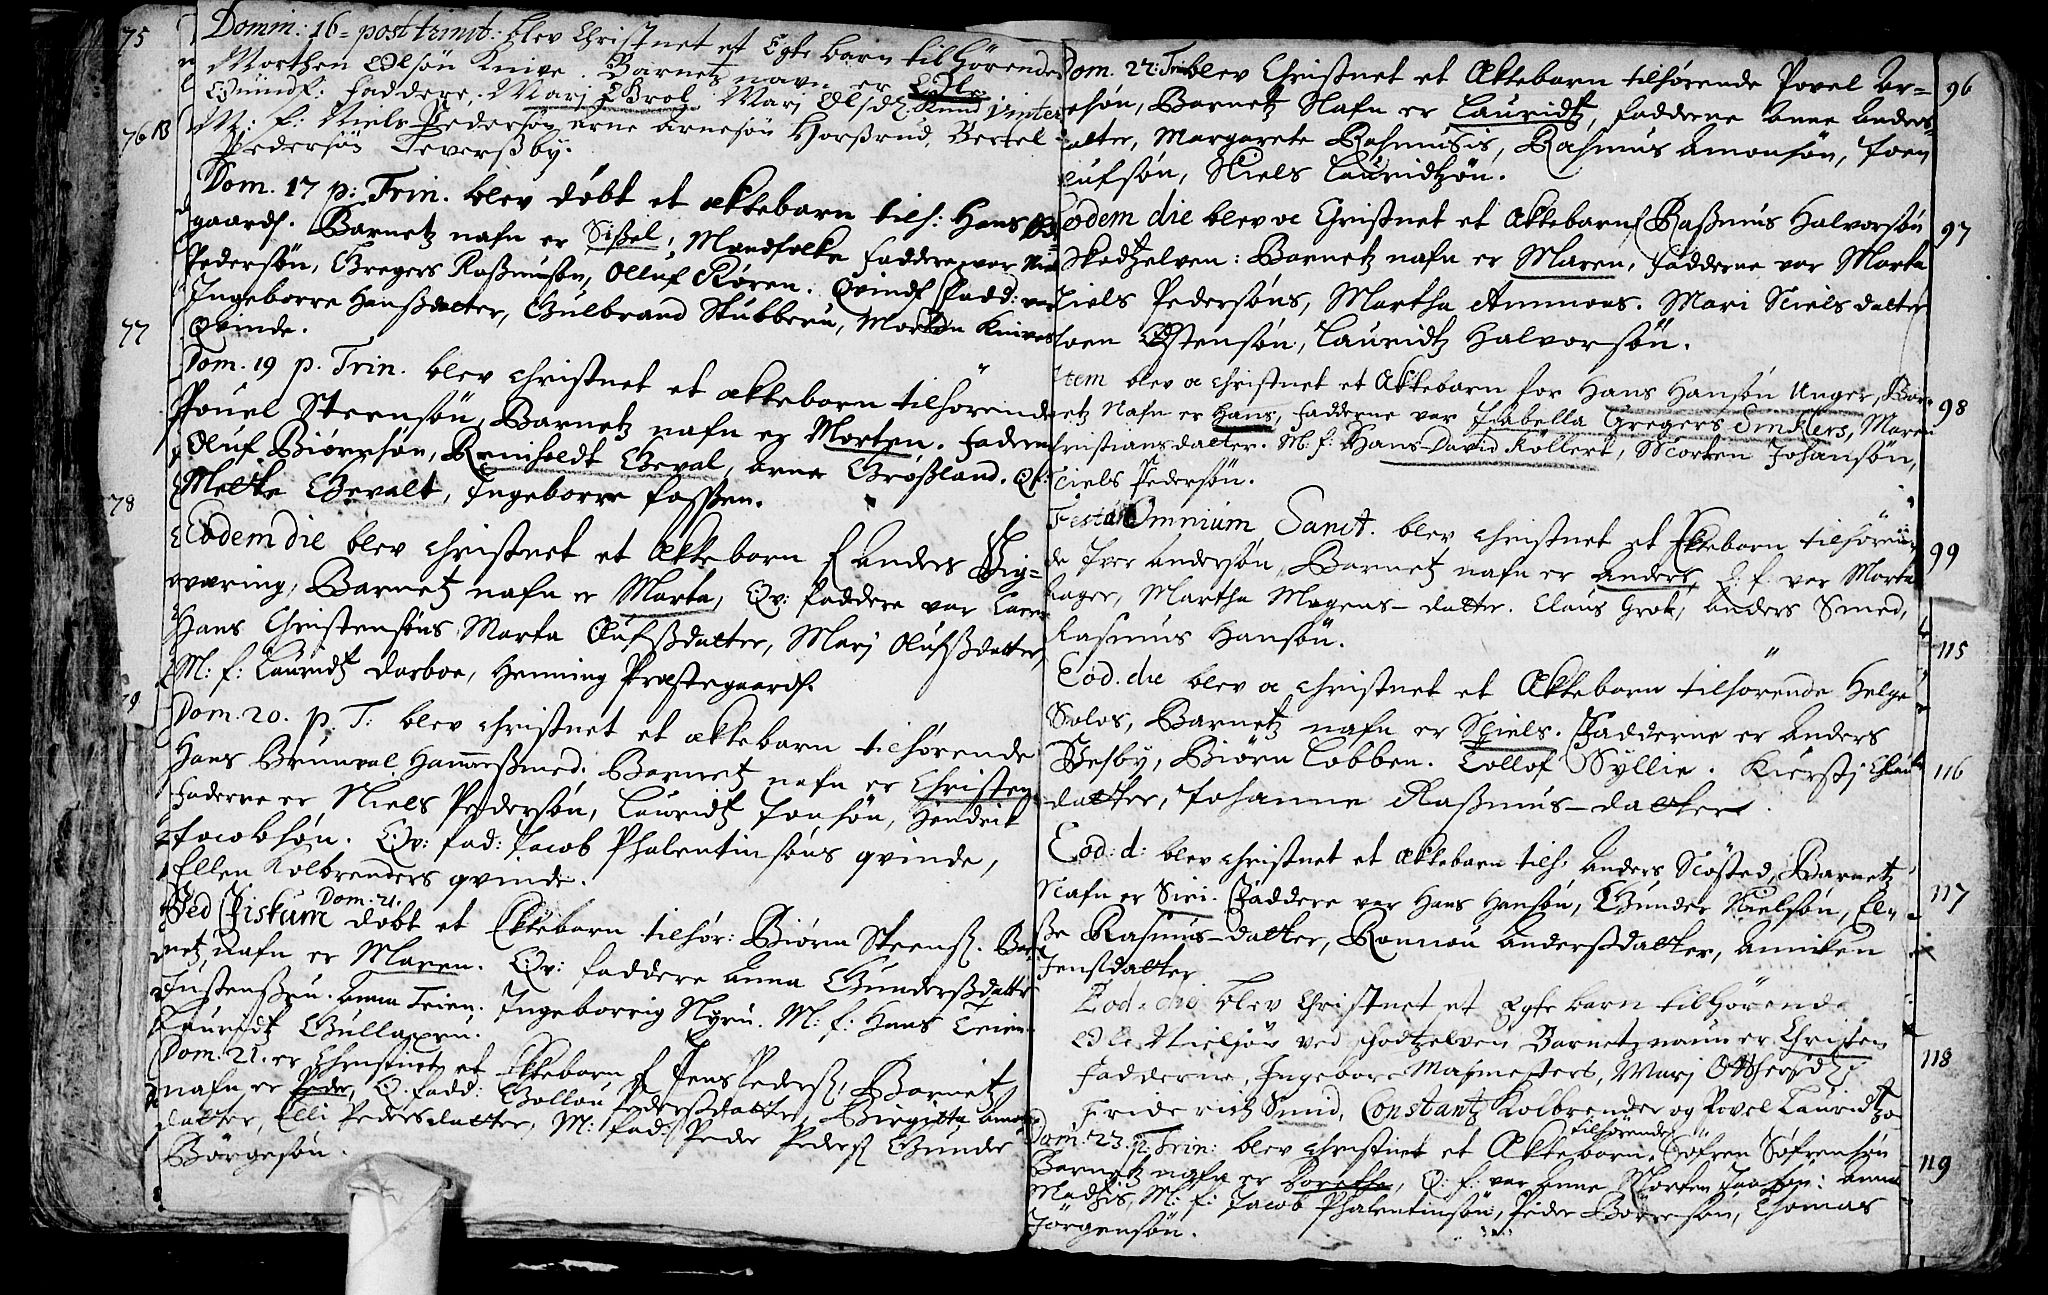 75
Domin: 16 = post trinit: blev Christnet et Egte barn tilhörende
Morthen Olsön Knive. Barnetz navn er Ole.
Qvindf: faddere, Marj Brol Marj Olsdt: Knud vinter
76
M: f: Niels Pedersön Arne Arnesön Horßrud, Bertel
Pedersön Teverßby.
Dom. 17 p: Trin. blev döbt et ektebarn tilh: Hans
gaards. Barnetz nafn er Sißel, Mandfolke faddere var
Pedersön, Gregers Raßmusön, Olluf Kören. Qvindf Fadd: var
Ingeborre Hanßdatter, Gulbrand Stubberu, Morten Knives
77
Qvinde.
Dom. 19 p. Trin. blev christnet et ektebarn tilhörende
Pouel Steensön, Barnetz nafn er Morten. Faderne
Oluf Biörnsön, Reinholdt Gevalt, Arne Großland. Qf:
Mette Gevalt, Ingeborre Foßßen.
78
Eodem die blev christnet et Ektebarn f Anders Vig=
væring, Barnetz nafn er Marta, Qv: faddere var Karen
Hans Christensöns Marta Olufßdatter, Marj Olufßdatter,
M: f: Lauridtz Darboe, Henning Præstegaards.
79
Dom. 20. p. T: blev christnet et ektebarn tilhörende
Hans Brunval Hammerßmed. Barnetz nafn er Christen
Faderne er Niels Pedersön, Lauridtz Jonsön, Hendrik
Jacobsön. Qv: fad: Jacob Phalentinsöns qvinde,
Ellen Kolbrenders qvinde.
Dom. 21.
Ved Fiskum döbt et Ektebarn tilhör: Biörn Steenß. Bar
netz nafn er Maren. Qv: faddere Anna Gunderßdatter
Justenßru. Anna Teien. Ingeborrig Nyru. M: f: Hans Teien
Lauridtz Gullagxru.
Dom: 21. er Christnet et Ektebarn f Jens Pederß, Barnetz
nafn er Peder, Q: fadd: Gollou Pederßdatter, Birgitta Amo
datter, Elli Pedersdatter, M: fad: Peder Pederß Gunder
Börgesön.
Dom. 22: Trin blev Christnet et Ektebarn tilhörende Povel Ar=
96
esön, Barnetz Nafn er Lauridtz, Fadderne Anne Anders-
datter, Margarete Rasmusis, Rasmus Amonsön, Joen
Olufsön, Niels Lauridtzön.
Eodem die blev oc Christnet et Ektebarn f Raßmus Halvorsön
97
Skodtzelven: Barnetz nafn er Maren, Fadderne var Marta
Niels Pedersöns, Martha Ammons. Mari Niels datter
Joen Östensön, Lauridtz Halvorsön.
Item blev oc christnet et Ektebarn for Hans Hansön Unger, Bar=
98
netz Nafn er Hans, Fadderne var Isabella Gregers Smkers, Maren
Christiansdatter. M: f: Hans David Köllert, Morten Johansön,
Niels Pedersön.
Festo Omnium Sanct. blev christnet et Ektebarn tilhören
99
de Iver Andersön, Barnetz nafn er Anders, Q: f: var Marta
hager, Martha Mogens-datter. Claus Grot, Anders Smed,
Rasmus Hansön.
115
Eod. die blev oc christnet et Ektebarn tilhörende Helge
Solos, Barnetz nafn er Niels. Fadderne er Anders
Besby, Biörn Lobben. Tollof Syllie. Kierstj
116
datter, Johanne Raßmus-datter.
Eod: d: blev christnet et ektebarn tilh: Anders Sösted, Barnetz
117
Nafn er Siri. Faddere var Hans Hansön, Gunder Nielsön, El=
ße Rasmus-datter, Ronnou Anderßdatter, Anniken
Jenßdatter
Eod: die blev Christnet et Egte barn tilhörende
Ole Nielsön ved Skodtzelven Barnetz naun er Christen
118
Fadderne, Ingebor Masmesters, Marj Ottersdt:
Friderich Smid, Constantz Kolbrender og Povel Lauridtzö
tilhörende
Dom: 23. p Trin: blev christnet et Ektebarn Söfren Söfrensön
119
Barnetz nafn er Dorethe, Q: f: var Anne Morten Jonsön: Anna
Madtzis, M: f: Jacob Phalentinsön, Peder Börresön, Thomas
Jörgensön.